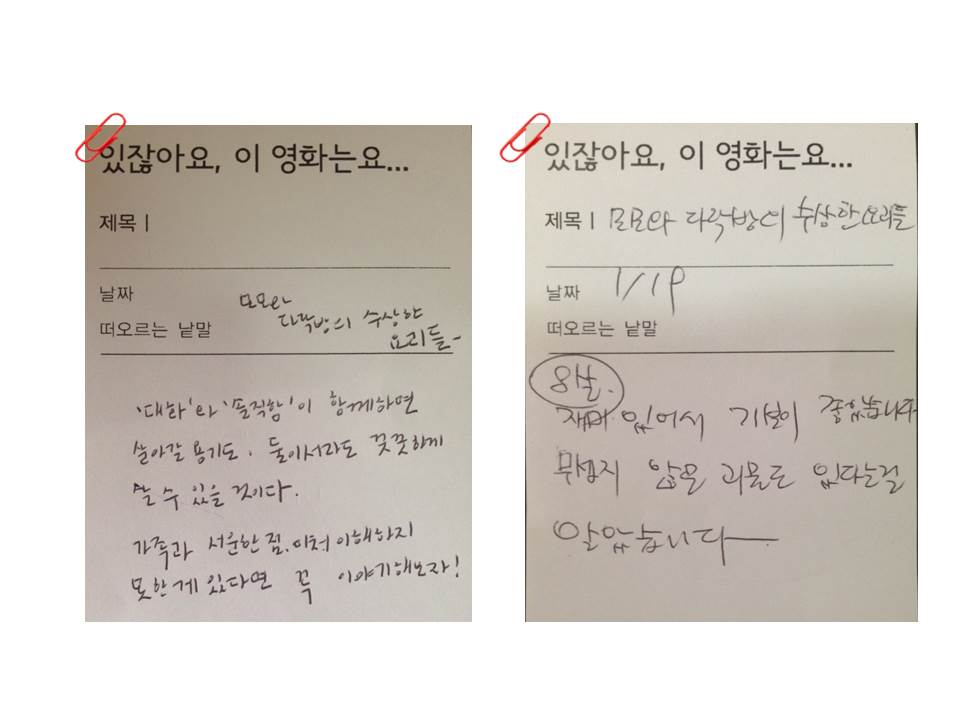 있잖아요, 이 영화는요...
제목 |
날짜
떠오르는 낱말
모모와
다락방의 수상한
요괴들-
'대화'와 '솔직함'이 함께하면
살아갈 용기도. 둘이서라도 꿋꿋하게
살 수 있을 것이다.
가족과 서운한 점. 미처 이해하지
못한게 있다면 꼭 이야기해보자!
있잖아요, 이 영화는요...
제목 | 모모와 다락방의 수상한 요괴들
날짜 1/19
떠오르는 낱말
8살.
재미 있어서 기분이 좋았습니다
무섭지 않은 괴물도 있다는걸
알았습니다